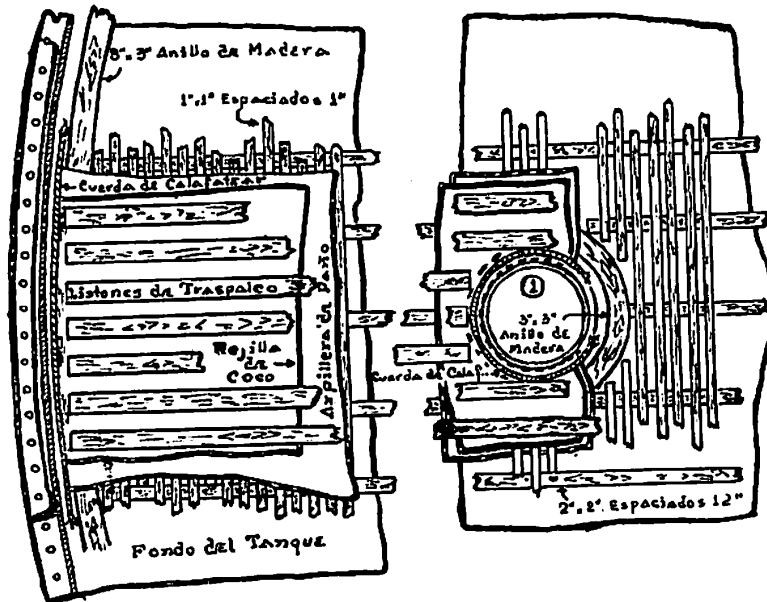 3"x 3" Anillo de Madera
1"x1" Espaciados 1"
Cuerda de Calafatear
Listones de Traspaleo
Rejilla
de
Coco
Arpillera de Paño
Fondo del Tanque
1
3"x 3"
Anillo de
Madera
Cuerda de Calaf.
2"x 2" Espaciados 12"